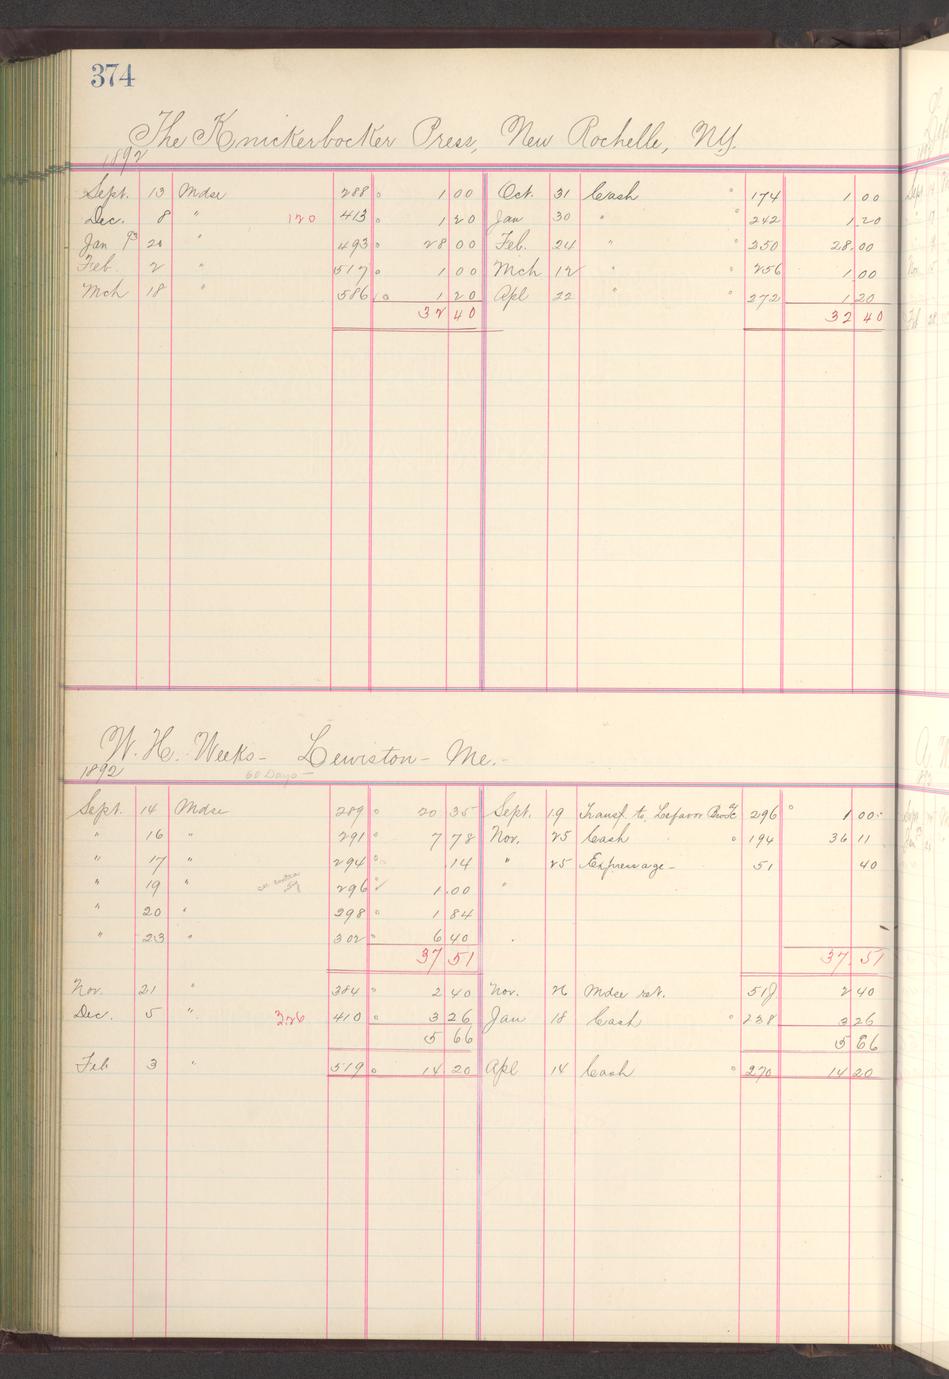 374
The Knickerbocker Press, New Rochelle, N.Y.
1892
Sept. 13 Mdse 288 1 00 Oct. 31 Cash 174 1 00
Dec. 8 " 120 413 1 20 Jan 30 " 242 1 20
Jan 93 20 " 493 28 00 Feb. 24 " 250 28.00
Feb. 2 " 517 1 00 Mch 12 " 256 1 00
Mch 18 " 586 1 20 Apl 22 " 272 1 20
32 40 32 40
W. H. Weeks - Lewiston - Me. -
1892 60 Days -
Sept. 14 Mdse 289 20 35 Sept. 19 Transf. to Lefavor 296 1 00
" 16 " 291 7 78 Nov. 25 Cash 194 36 11
" 17 " 294 14 " 25 Expressage - 51 40
" 19 " 296 1.00 "
" 20 " 298 1 84
" 23 " 302 6 40
37 51 37.51
Nov. 21 " 384 2 40 Nov. 26 Mdse ret. 518 2 40
Dec. 5 " 326 410 3 26 Jan 18 Cash 238 3 26
5 66 5 66
Feb 3 " 519 14 20 Apl 14 Cash 270 14 20